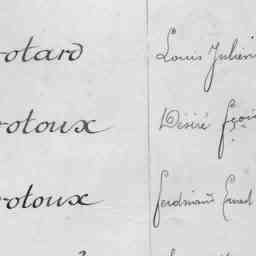 rotard Louis Julien
rotoux Désiré fçois
rotoux ferdinand Ernest